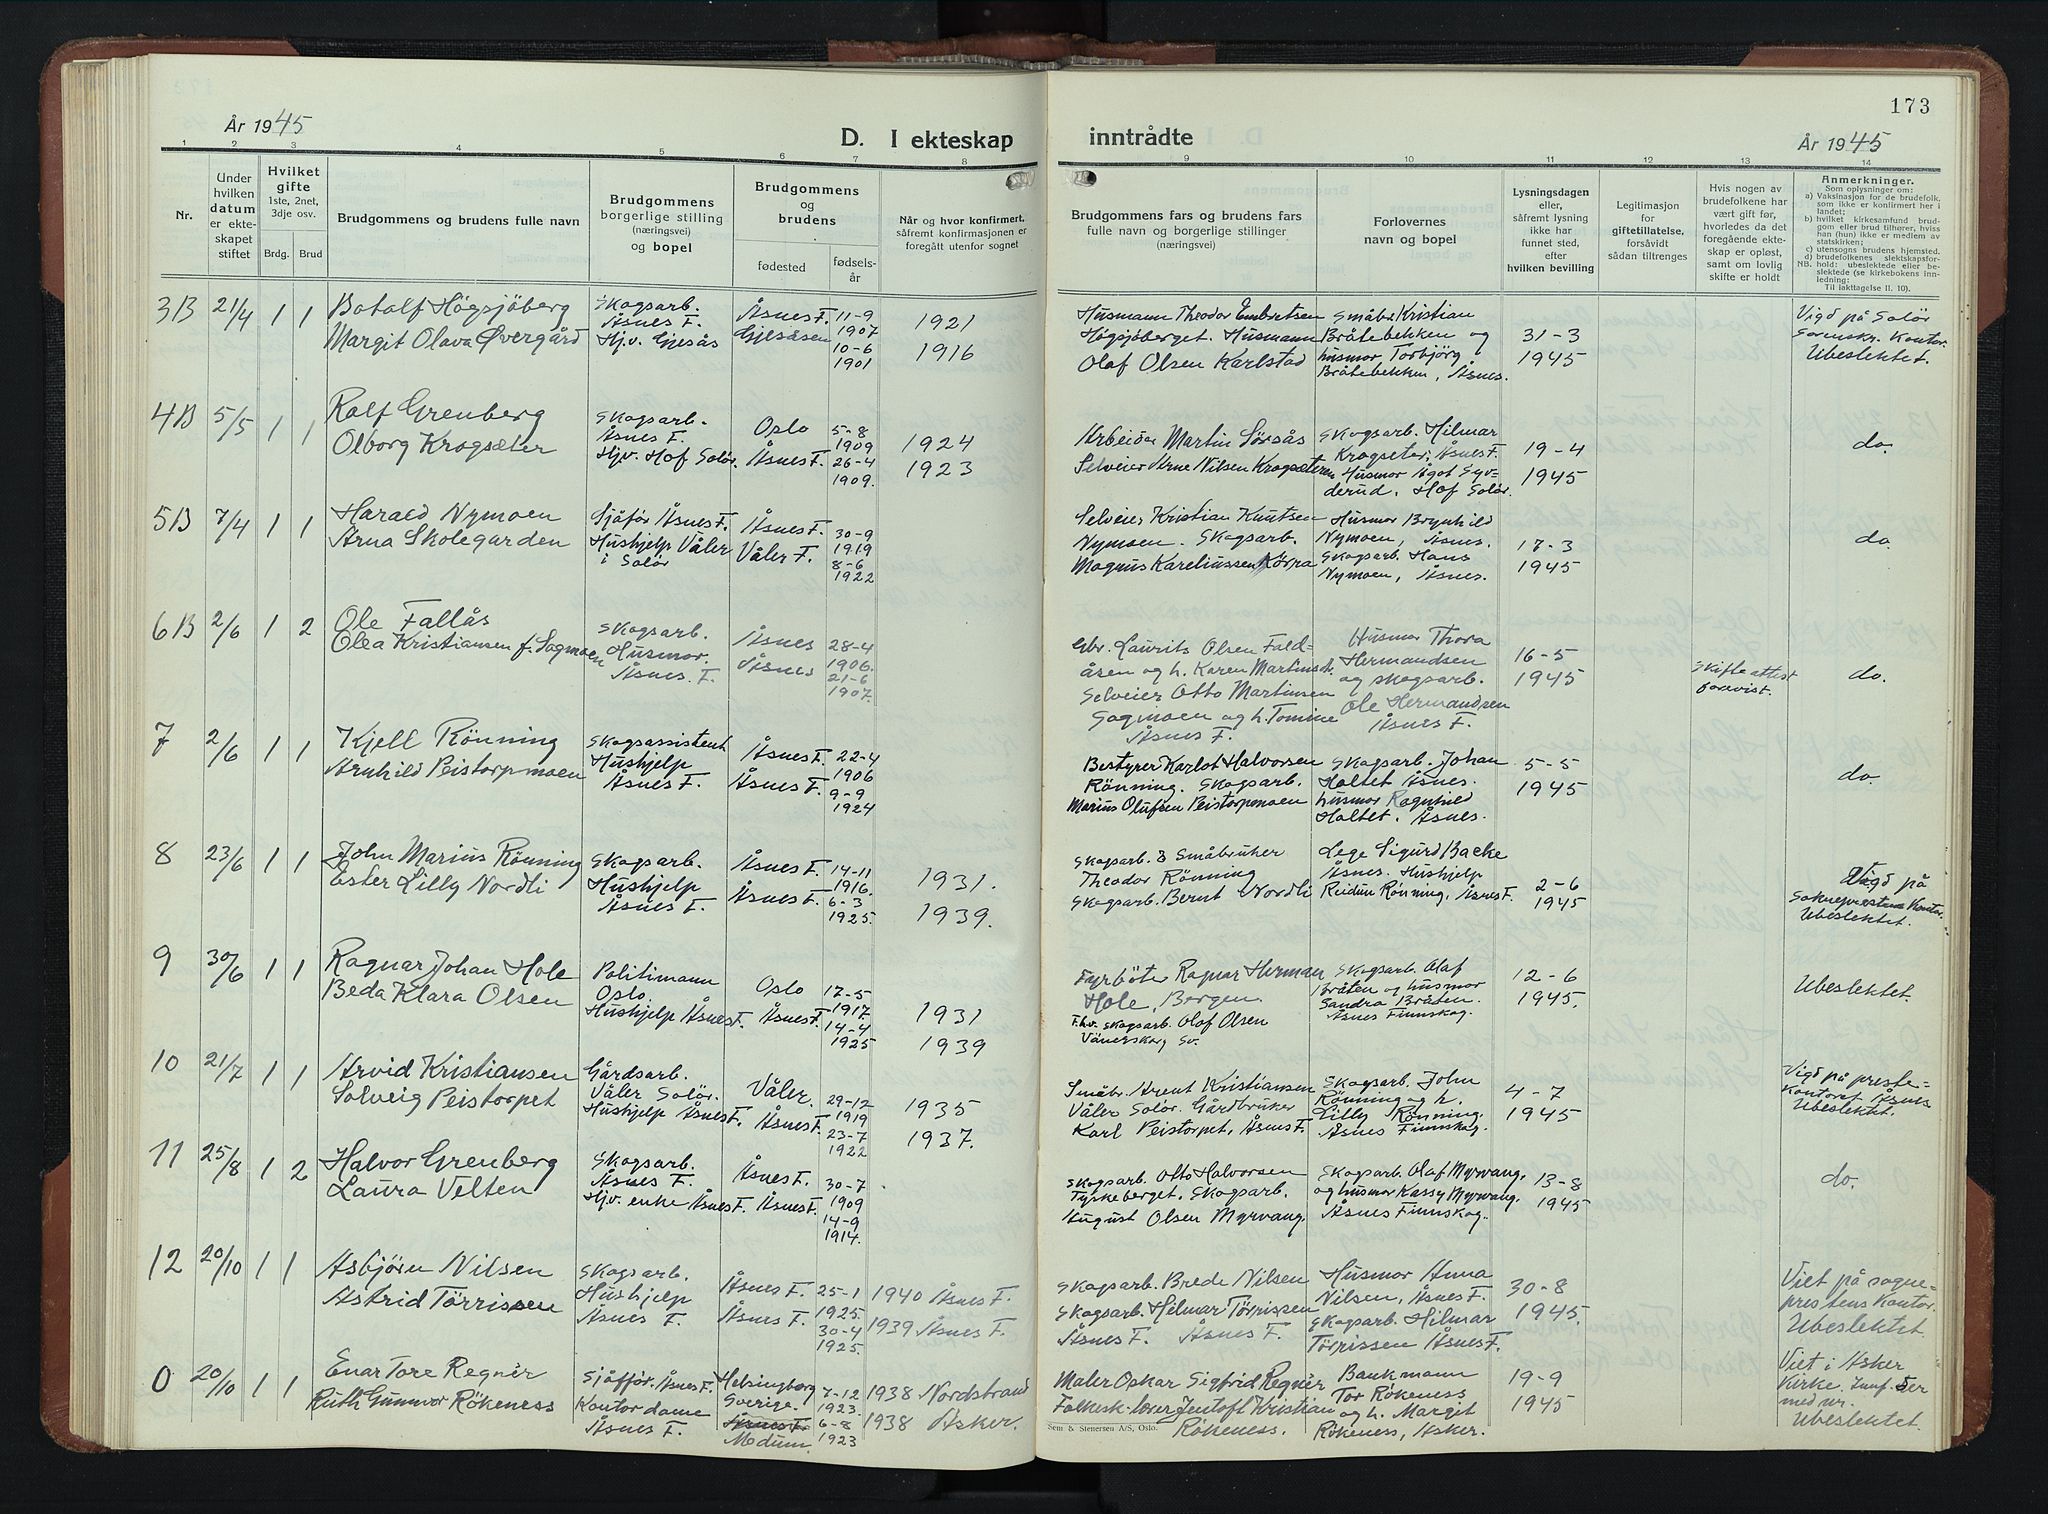 År 1945
D. I ekteskap
1 2 3 4 5 6 7 8
Nr.
Under hvilken datum er ekteskapet stiftet
Hvilket gifte
1ste, 2net, 3dje osv.
Brdg. Brud
Brudgommens og brudens fulle navn
Brudgommens borgerlige stilling (næringsvei) og bopel
Brudgommens og brudens
fødested
fødselsår
Når og hvor konfirmert, såfremt konfirmasjonen er foregått utenfor sognet
3B 21/4 1 1 Botolf Högsjöberg Skogsarb. Åsnes F. Åsnes F. 11-9 1907 1921
Margit Olava Øvergård Hjv. Gjesås Gjesåsen 10-6 1901 1916
4B 5/5 1 1 Rolf Grenberg Skogsarb. Åsnes F. Oslo 5-8 1909 1924
Olborg Krogsæter Hjv. Hof Solör. Åsnes F. 26-4 1909. 1923
5B 7/4 1 1 Harald Nymoen Sjåfør Åsnes F. Åsnes F. 30-9 1919
Arna Skolegarden Hushjelp Våler i Solör Våler F. 8-6 1922
6B 2/6 1 2 Ole Fallås Skogsarb. Åsnes 28-4 1906.
Olea Kristiansen f. Sagmoen Husmor. Åsnes F. Åsnes 21-6 1907.
7 2/6 1 1 Kjell Rönning Skogsassistent Åsnes F. 22-4 1906
Arnhild Peistorpmoen Hushjelp Åsnes F. Åsnes F. 9-9 1924
8 23/6 1 1 John Marius Rönning Skogsarb. Åsnes F. 14-11 1916. 1931.
Ester Lilly Nordli Hushjelp Åsnes F. Åsnes F. 6-3 1925. 1939.
9 30/6 1 1 Ragnar Johan Hole Politimann Oslo Oslo 17-5 1917. 1931
Beda Klara Olsen Hushjelp Åsnes F. Åsnes F. 14-4 1925 1939
10 21/7 1 1 Arvid Kristiansen Gårdsarb. Våler Solör. Våler. 29-12 1919 1935
Solveig Peistorpet Hushjelp Åsnes F. Åsnes F. 23-7 1922 1937.
11 25/8 1 2 Halvor Grenberg Skogsarb. Åsnes F. Åsnes F. 30-7 1909
Laura Velten Hjv. enke Åsnes F. Åsnes F. 14-9 1914.
12 20/10 1 1 Asbjørn Nilsen Skogsarb. Åsnes F. 25-1 1925. 1940 Åsnes F.
Astrid Törrissen Hushjelp Åsnes F. Åsnes F. 30-4 1925. 1939 Åsnes F.
0 20/10 1 1 Enar Tore Regnér Sjåfför. Åsnes F. Helsingborg Sverige. 7-12 1923 1938 Nordstrand
Ruth Gunvor Rökeness Kontordame Åsnes F. Åsnes F. Modum. 6-8 1923 1938 Asker.
173
inntrådte
År 1945
9 10 11 12 13 14
Brudgommens fars og brudens fars fulle navn og borgerlige stillinger (næringsvei)
Forlovernes navn og bopel
Lysningsdagen eller, såfremt lysning ikke har funnet sted, efter hvilken bevilling
Legitimasjon for giftetillatelse, forsåvidt sådan tiltrenges
Hvis nogen av brudefolkene har vært gift før, hvorledes da det foregående ekteskap er opløst, samt om lovlig skifte er holdt
Anmerkninger.
Som oplysninger om:
a) Vaksinasjon for de brudefolk, som ikke er konfirmert her i landet;
b) hvilket kirkesamfund brudgom eller brud tilhører, hviss han (hun) ikke er medlem av statskirken;
c) utensogns brudens hjemsted.
d) brudefolkenes slektskapsforhold: ubeslektede eller beslektede (se kirkebokens innledning:
NB. Til iakttagelse II. 10).
Husmann Theodor Embretsen Högsjöberget. Husmann Olaf Olsen Karlstad
Småbr. Kristian Bråtebekken og husmor Torbjörg Bråtebekken, Åsnes.
31-3 1945
Vigd på Solör Sorenskr. Kontor. Ubeslektet.
Arbeider Martin Sörsås Selveier Arne Nilsen Krogsæteren
Skogsarb. Hilmar Krogseter, Åsnes F. Husmor Ågot Syverud. Hof Solör.
19-4 1945
do.
Selveier Kristian Knutsen Nymoen. Skogsarb. Magnus Kareliussen Körpa
Husmor Brynhild Nymoen, Åsnes. Skogsarb. Hans Nymoen, Åsnes.
17-3 1945
do.
Gbr. Laurits Olsen Faldåsen og h. Karen Martinsdt. Selveier Otto Martinsen Sagmoen og h. Tomine Åsnes F.
Husmor Thora Hermandsen og skogsarb. Ole Hermandsen Åsnes F.
16-5 1945
Skifteattest forevist.
do.
Bestyrer Karlot Halvorsen Rönning. Skogsarb. Marius Olufsen Peistorpmoen
Skogsarb. Johan Holtet Åsnes. husmor Ragnhild Holtet. Åsnes.
5-5 1945
do.
Skogsarb. & Småbruker Theodor Rönning Skogsarb. Bernt Nordli
Lege Sigurd Backe Åsnes. Hushjelp Reidun Rönning, Åsnes F.
2-6 1945
Vigd på Sokneprestens Kontor. Ubeslektet.
Fyrböter Ragnar Herman Hole, Bergen. F.hv. skogsarb. Olaf Olsen Vänerskog Sv.
Skogsarb. Olaf Bråten og husmor Sandra Bråten. Åsnes Finnskog.
12-6 1945.
Ubeslektet.
Småbr. Arent Kristiansen Våler Solör. Gårdbruker Karl Peistorpet, Åsnes F.
Skogsarb. John Rönning og h. Lilly Rönning. Åsnes Finnskog.
4-7 1945
Vigd på prestekontoret Åsnes Ubeslektet.
Skogsarb. Otto Halvorsen Tyskeberget. Skogsarb. August Olsen Myrvang.
Skogsarb. Olaf Myrvang. og husmor Kassy Myrvang. Åsnes Finnskog.
13-8 1945
do.
Skogsarb. Brede Nilsen Skogsarb. Hilmar Törrissen Åsnes F. Åsnes F.
Husmor Anna Nilsen, Åsnes F. Skogsarb. Hilmar Törrissen Åsnes F.
30-8 1945.
Viet på sogneprestens Kontor. Ubeslektet.
Maler Oskar Sigfrid Regnér Folkesk.lærer Jentoft Kristian Rökeness.
Bankmann Tor Rökeness og h. Margit Rökeness, Asker.
19-9 1945
Viet i Asker Kirke. Ubeslektet.
Sem & Stenersen A/S, Oslo.